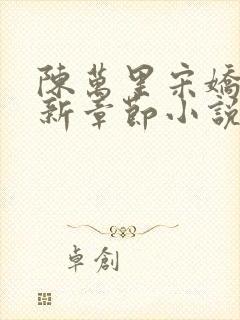 陳萬里宋嬌
新章節小說
卓創